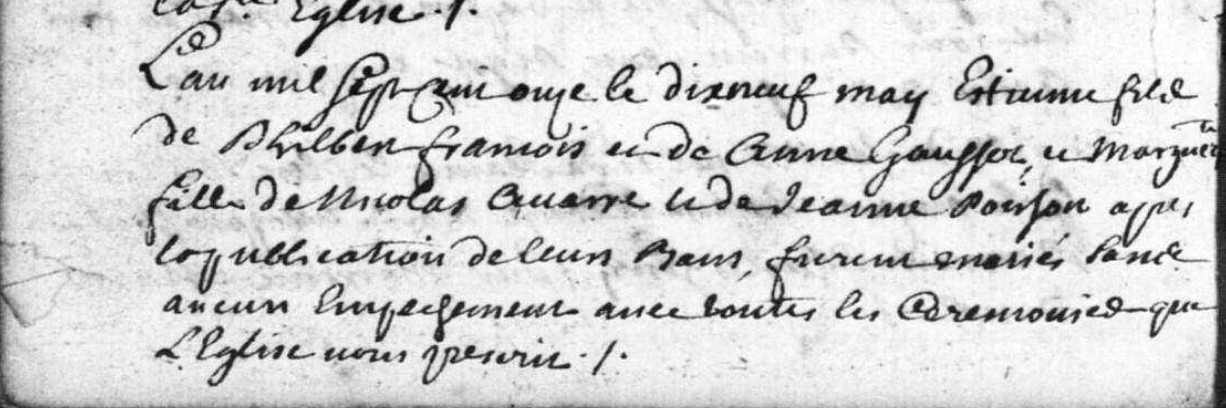 Eglise ./.
L'an mil sept cent onze le dixneuf may Estienne fils
de Philbert francois et de Anne Gaussot, et Marguerte
fille de Nicolas Quarre et de Jeanne Poisson apres
la publication de leurs Bans, furent mariés sans
aucun Empechement avec toutes les Ceremonies que
L'Eglise nous prescrit ./.